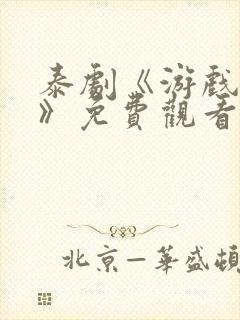 泰劇《游戲
》免費觀看
北京—華盛頓